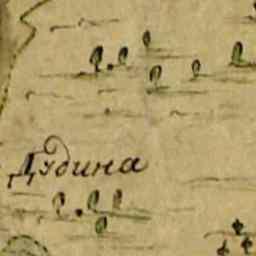 Дубина